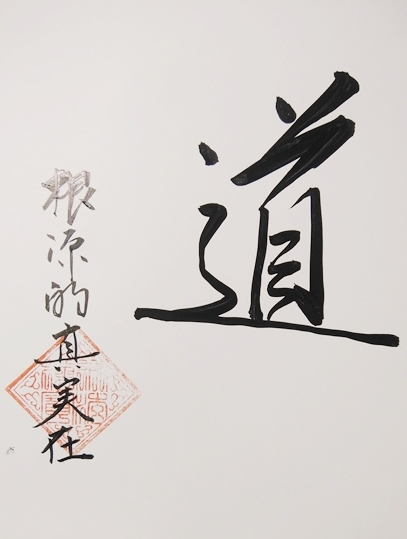 道
根源的真実在